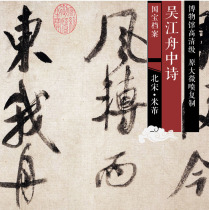 博物馆高清级 原大微喷复制
吴江舟中诗
国宝档案
北宋·米芾
今
風轉而
東我舟